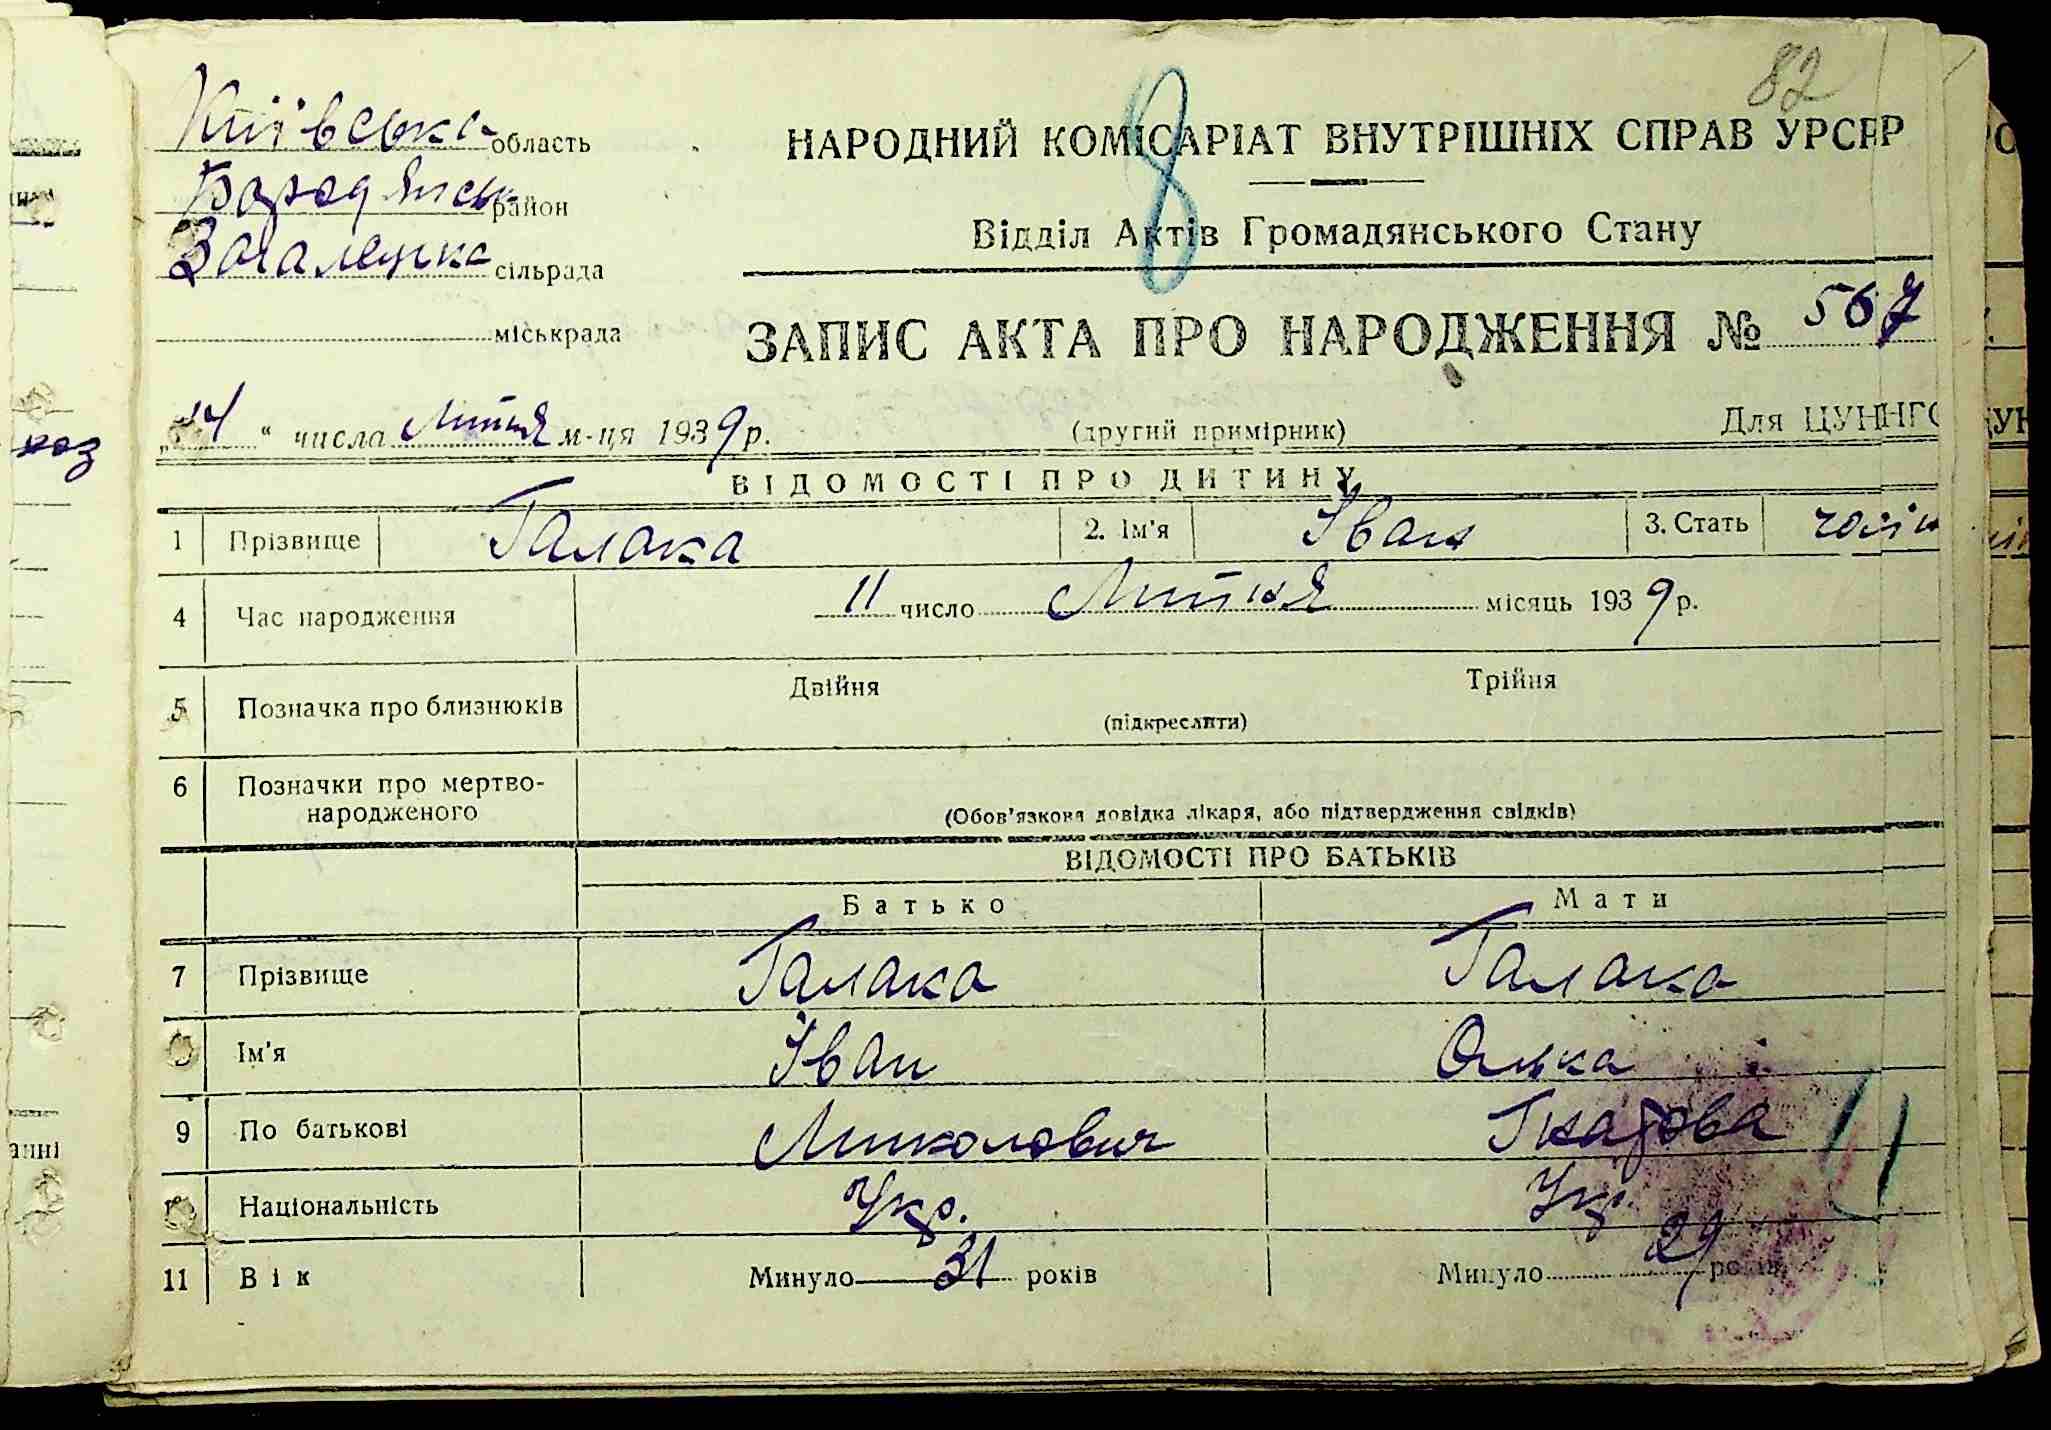 82
Київська область
НАРОДНИЙ КОМІСАРІАТ ВНУТРІШНІХ СПРАВ УРСР
8
Бородянськ район
Відділ Актів Громадянського Стану
Загалецка сільрада
міськрада
ЗАПИС АКТА ПРО НАРОДЖЕННЯ № 567
„14“ числа Липня м-ця 1939 р. (другий примірник) Для ЦУНГО
ВІДОМОСТІ ПРО ДИТИНУ
1 Прізвище Галака 2. Ім'я Іван 3. Стать чолік
4 Час народження 11 число Липня місяць 1939 р.
5 Позначка про близнюків Двійня Трійня
(підкреслити)
6 Позначки про мертво-
народженого (Обов'язкова довідка лікаря, або підтвердження свідків)
ВІДОМОСТІ ПРО БАТЬКІВ
Батько Мати
7 Прізвище Галака Галака
Ім'я Іван Олька
9 По батькові Миколович
Національність Укр. Укр.
11 Вік Минуло 31 років Минуло 29 років